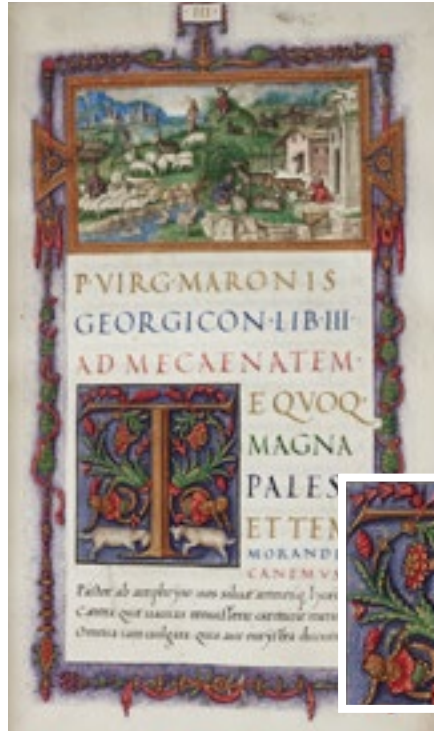 ·III·
P·VIRG·MARONIS
GEORGICON·LIB·III·
AD MECAENATEM·
T E QVOQ·
MAGNA
PALES
ET TE
MORAND
CANEMVS
Pastor ab amphryso uos siluae
Omnia iam uulgata quis aut